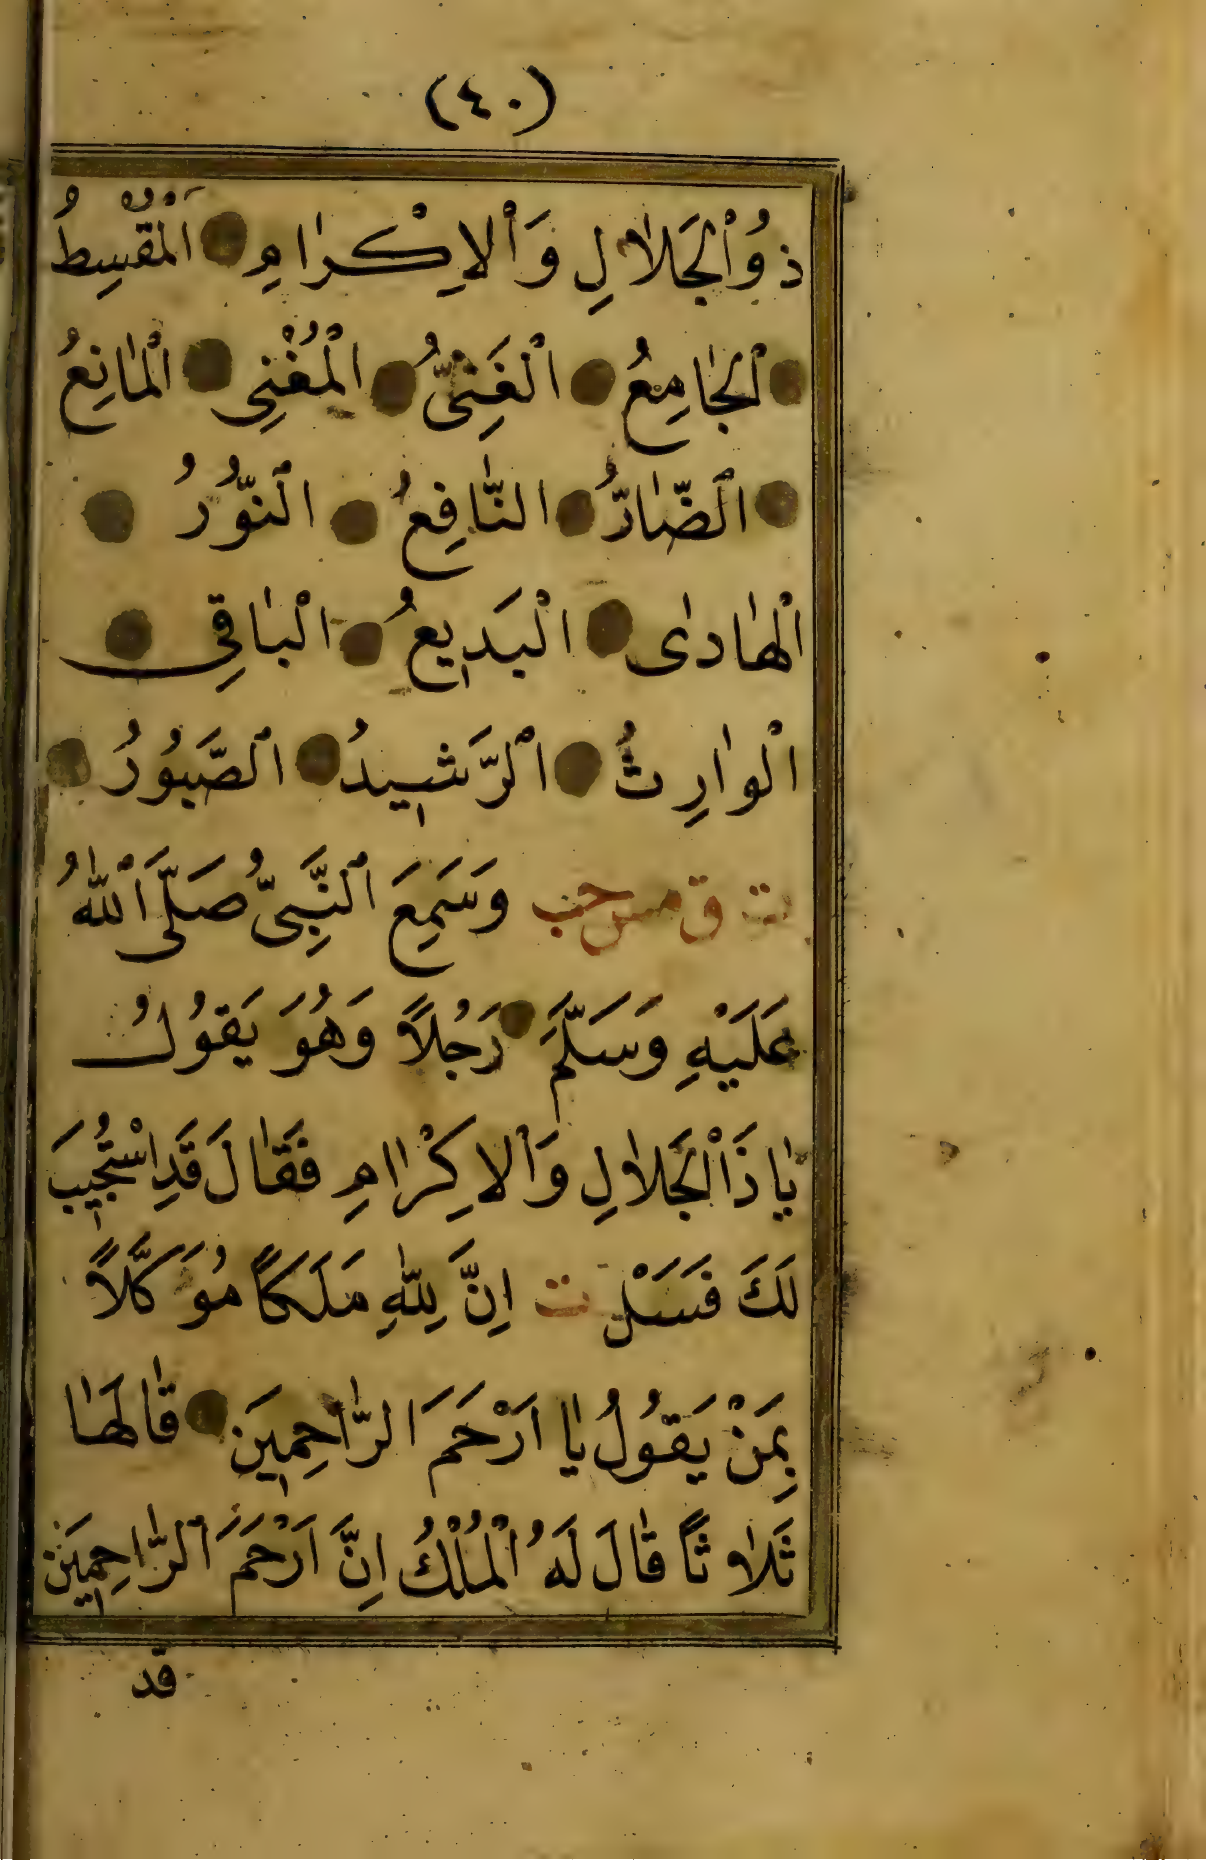 (٤٠)
ذُو الْجَلَالِ وَالْاِكْرَامِ الْمُقْسِطُ
الْجَامِعُ الْغَنِىُّ الْمُغْنِى الْمَانِعُ
الضَّارُّ النَّافِعُ النُّورُ
الْهَادِى الْبَدِيعُ الْبَاقِى
الْوَارِثُ الرَّشِيدُ الصَّبُورُ
ت ق مس حب وَسَمِعَ النَّبِىُّ صَلَّى اللهُ
عَلَيْهِ وَسَلَّمَ رَجُلًا وَهُوَ يَقُولُ
يَا ذَا الْجَلَالِ وَالْاِكْرَامِ فَقَالَ قَدِ اسْتُجِيبَ
لَكَ فَسَلْ ت اِنَّ لِلّٰهِ مَلَكًا مُوَكَّلًا
بِمَنْ يَقُولُ يَا اَرْحَمَ الرَّاحِمِينَ قَالَهَا
ثَلَاثًا قَالَ لَهُ الْمُلْكُ اِنَّ اَرْحَمَ الرَّاحِمِينَ
قد